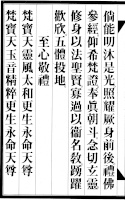 倘能明沐是光照耀厥身前後禮佛
參經仰希梵證奉眞朝斗念切玄靈
修身以法聖賢寡過以衞名敎踴躍
歡欣五體投地
至心敬禮
梵寶天靈風太和更生永命天尊
梵寶天玉音精粹更生永命天尊